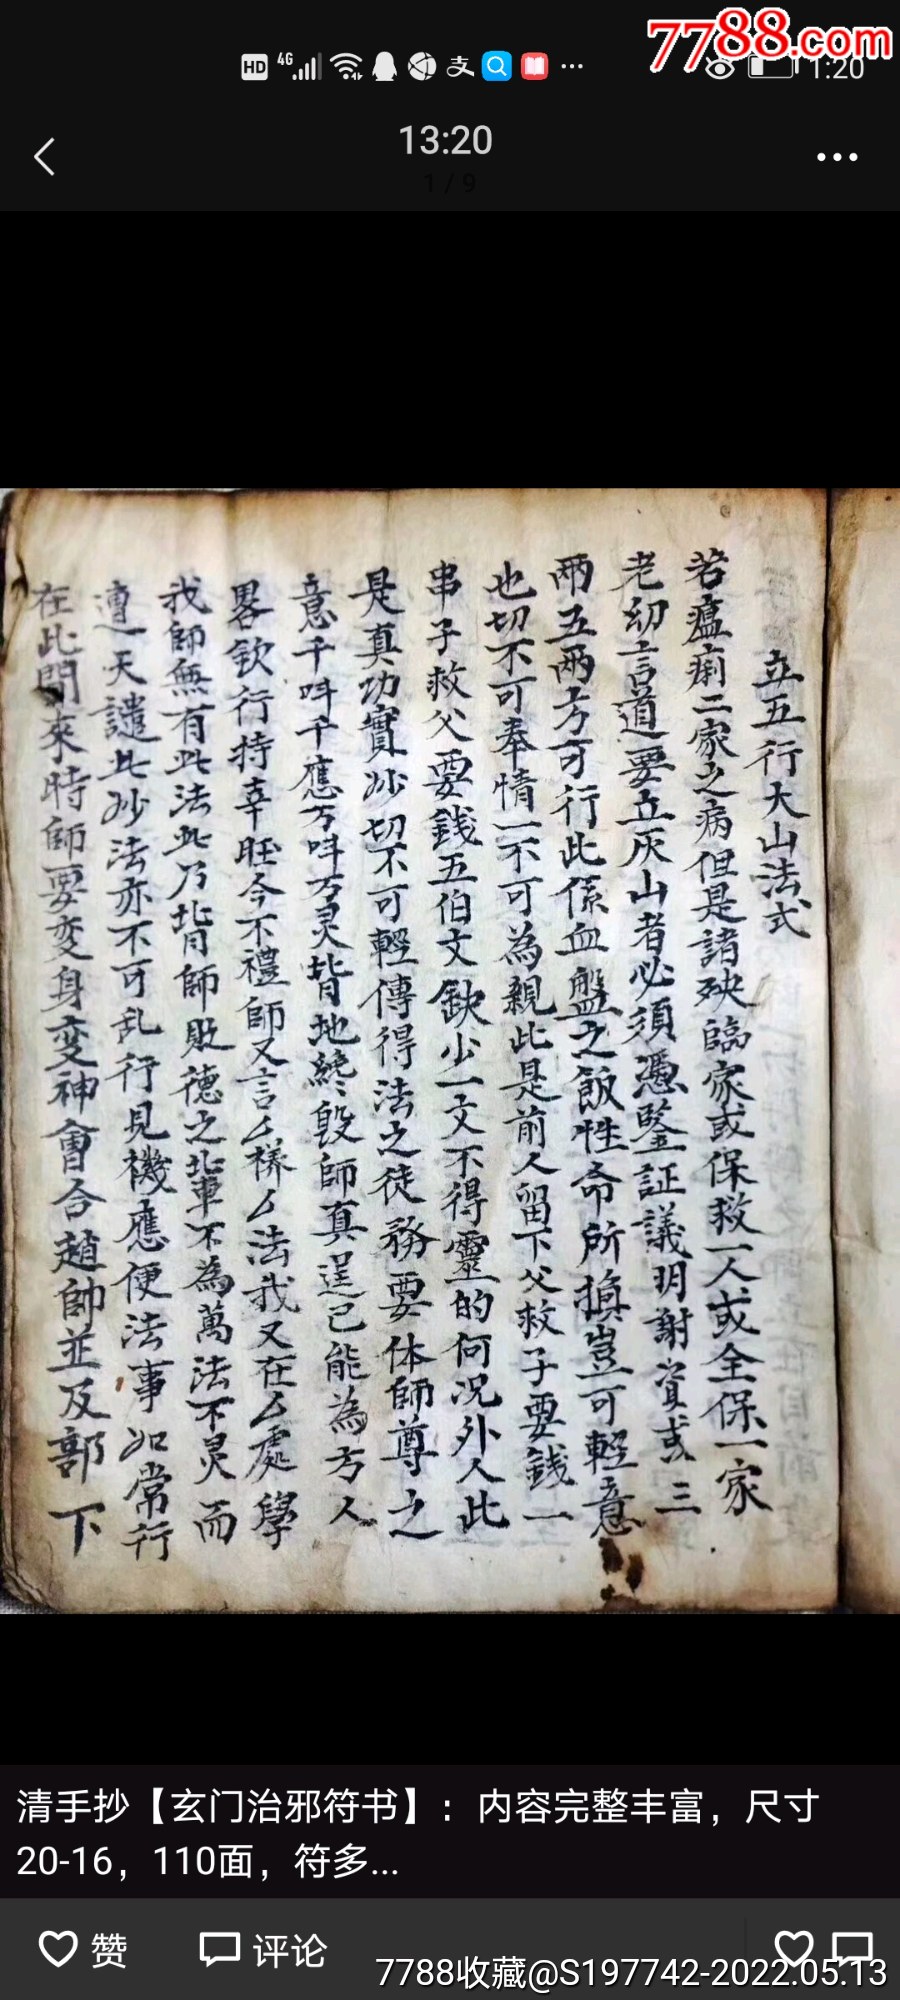 7788.com
HD 4G 1:20
13:20
1 / 9
立五行大山法式
若瘟痢二家之病但是諸殃臨家或保救一人或全保一家
老幼言道要立灰山者必須憑鑒証議明謝資或三
两五两方可行此係血盤之飯性命所損豈可輕意
也切不可奉情一不可為親此是前人留下父救子要錢一
串子救父要錢五伯文缺少一文不得靈的何况外人此
是真功實妙切不可輕傳得法之徒務要体師尊之
意千呌千應万呌万灵背地終毀師真逞己能為方人
畧欽行持幸旺今不禮師又言厶樣厶法我又在厶處學
我師無有此法此乃背師敗德之輩不為萬法不灵而
遭天譴此妙法亦不可乱行見機應便法事如常行
在此門來時師要变身变神會合趙帥並及部下
清手抄【玄门治邪符书】：内容完整丰富，尺寸
20-16，110面，符多...
赞 评论
7788收藏@S197742-2022.05.13